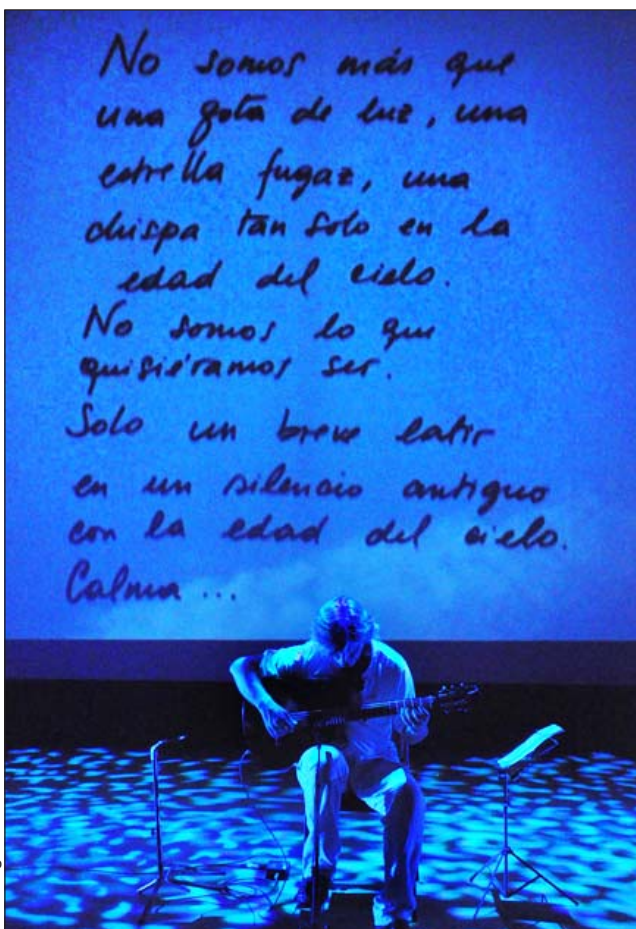 No somos más que
una gota de luz, una
estrella fugaz, una
chispa tan solo en la
edad del cielo.
No somos lo que
quisiéramos ser.
Solo un breve latir
en un silencio antiguo
con la edad del cielo.
Calma ...